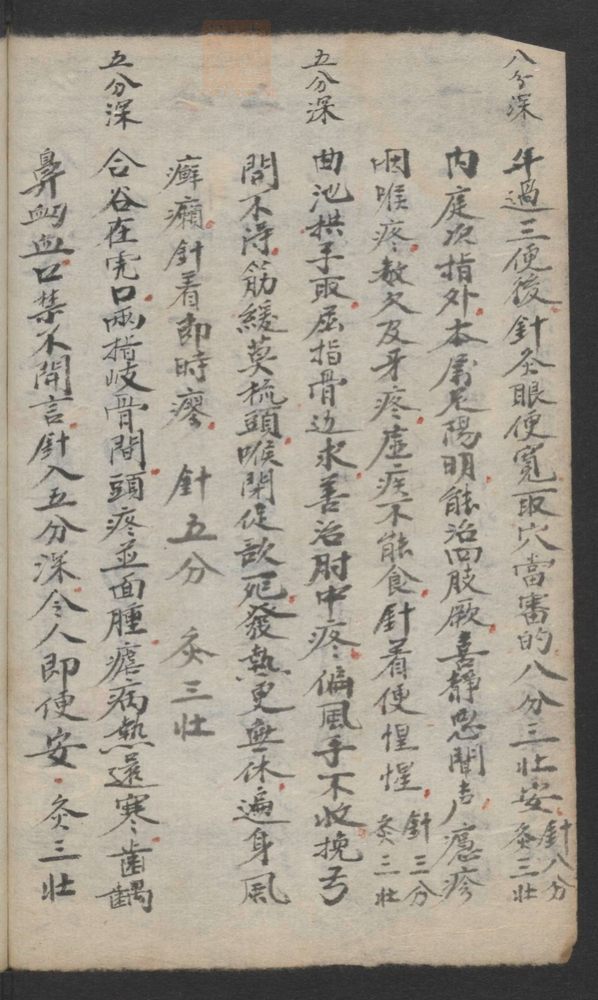 八分深
年過三便後針灸眼便寬取穴當審的八分三壯安針八分灸三壯
內庭次指外本屬足陽明能治四肢厥喜靜惡聞声癮疹
咽喉疼數欠及牙疼虐疾不能食針着便惺惺針三分灸三壯
五分深
曲池拱手取屈指骨边求善治肘中疼偏風手不收挽弓
開不淂筋緩莫梳頭喉閉促欲死發熱更無休遍身風
癬癩針着即時瘳　針五分　灸三壯
五分深
合谷在虎口兩指岐骨間頭疼並面腫瘧病熱還寒齒齲
鼻衂血口禁不開言針入五分深令人即便安灸三壯